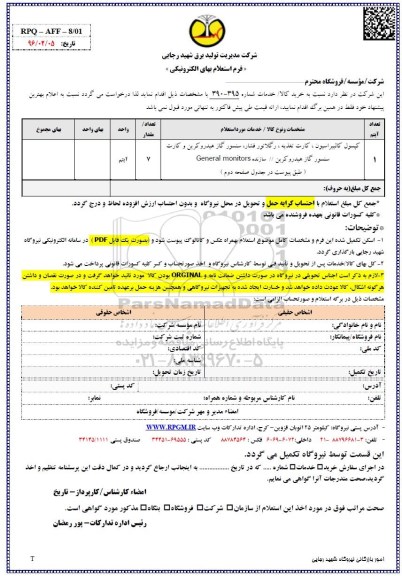 RPQ – AFF – 8/01
تاریخ: ۹۶/۰۴/۰۵
شرکت مدیریت تولید برق شهید رجایی
« فرم استعلام بهای الکترونیکی »
شرکت/مؤسسه/فروشگاه محترم
این شرکت در نظر دارد نسبت به خرید کالا/ خدمات شماره ۳۹۰۰۳۹۵ با مشخصات ذیل اقدام نماید لذا درخواست می گردد نسبت به اعلام بهترین
پیشنهاد خود فقط در همین برگه اقدام نمایید، ارائه قیمت طی پیش فاکتور به تنهایی مورد قبول نمی باشد
تعداد آیتم مشخصات ونوع کالا / خدمات مورداستعلام تعداد/ مقدار واحد بهای واحد بهای مجموع
۱ کپسول کالیبراسیون ، کارت تغذیه ، رگلاتور فشار، سنسور گاز هیدروکربن و کارت ۷ آیتم
سنسور گاز هیدروکربن // سازنده General monitors
( طبق پیوست در جدول صفحه دوم )
جمع کل مبلغ(به حروف):
*جمع کل مبلغ استعلام با احتساب کرایه حمل و تحویل در محل نیروگاه و بدون احتساب ارزش افزوده لحاظ و درج گردد.
*کلیه کسورات قانونی بعهده فروشنده می باشد
* توضیحات:
۱- اسکن تکمیل شده این فرم و مشخصات کامل موضوع استعلام بهمراه عکس و کاتالوگ پیوست شود و (بصورت یک فایل PDF ) در سامانه الکتریکی نیروگاه
شهید رجایی بارگذاری گردد.
۲- کل بهای کالا/خدمات پس از تحویل و تأیید فنی توسط کارشناس نیروگاه و اخذ صورتحساب و کسر کلیه کسورات قانونی پرداخت می شود.
۳-لازم به ذکر است اجناس تحویلی در نیروگاه در صورت داشتن ضمانت نامه و ORGINAL بودن کالا مورد تائید خواهد گرفت و در صورت نقصان و داشتن
هرگونه اشکال، کالا عودت داده خواهد شد و خسارت ایجاد شده به تجهیزات نیروگاهی و همچنین هزینه حمل برعهده تامین کننده کالا خواهد بود.
مشخصات ذیل در برگه استعلام و صورتحساب الزامی است:
اشخاص حقیقی اشخاص حقوقی
نام و نام خانوادگی: نام مؤسسه/شرکت:
نام فروشگاه/پیمانکار: شماره ثبت شرکت:
کد ملی: کد اقتصادی:
شناسه ملی:
تاریخ تکمیل: تاریخ زمان تحویل:
آدرس: کد پستی:
تلفن: نام کارشناس مربوطه و شماره همراه: نمابر:
امضاء مدیر و مهر شرکت/موسسه/فروشگاه
ParsNamadData
۰۲۱-۸۸۳۴۹۶۷۰-۵
- آدرس پستی نیروگاه: کیلومتر ۲۵ اتوبان قزوین-کرج، اداره تدارکات وب سایت WWW.RPGM.IR
این قسمت توسط نیروگاه تکمیل می گردد.
در اجرای سفارش خرید□خدمات□شماره ..... که در تاریخ ............... به اینجانب ارجاع گردید و در کمال دقت این پرسشنامه تنظیم و اخذ
گردید،صحت مندرجات آنرا گواهی می نمایم.
امضاء کارشناس/کارپرداز – تاریخ
صحت مراتب فوق در مورد اخذ این استعلام از سازمان□ شرکت□ فروشگاه□ بنگاه□ مذکور مورد گواهی است.
رئیس اداره تدارکات- پور رمضان
امور بازرگانی نیروگاه شهید رجایی
T